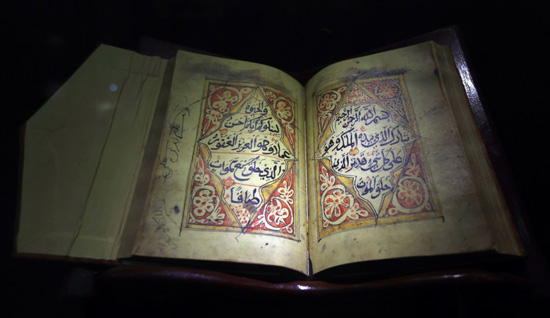 بسم الله الرحمن الرحيم
تبارك الذي بيده الملك وهو
على كل شيء قدير الذي
خلق الموت
والحيوة
ليبلوكم ايكم احسن
عملا وهو العزيز الغفور
الذي خلق سبع سموات
طباقا